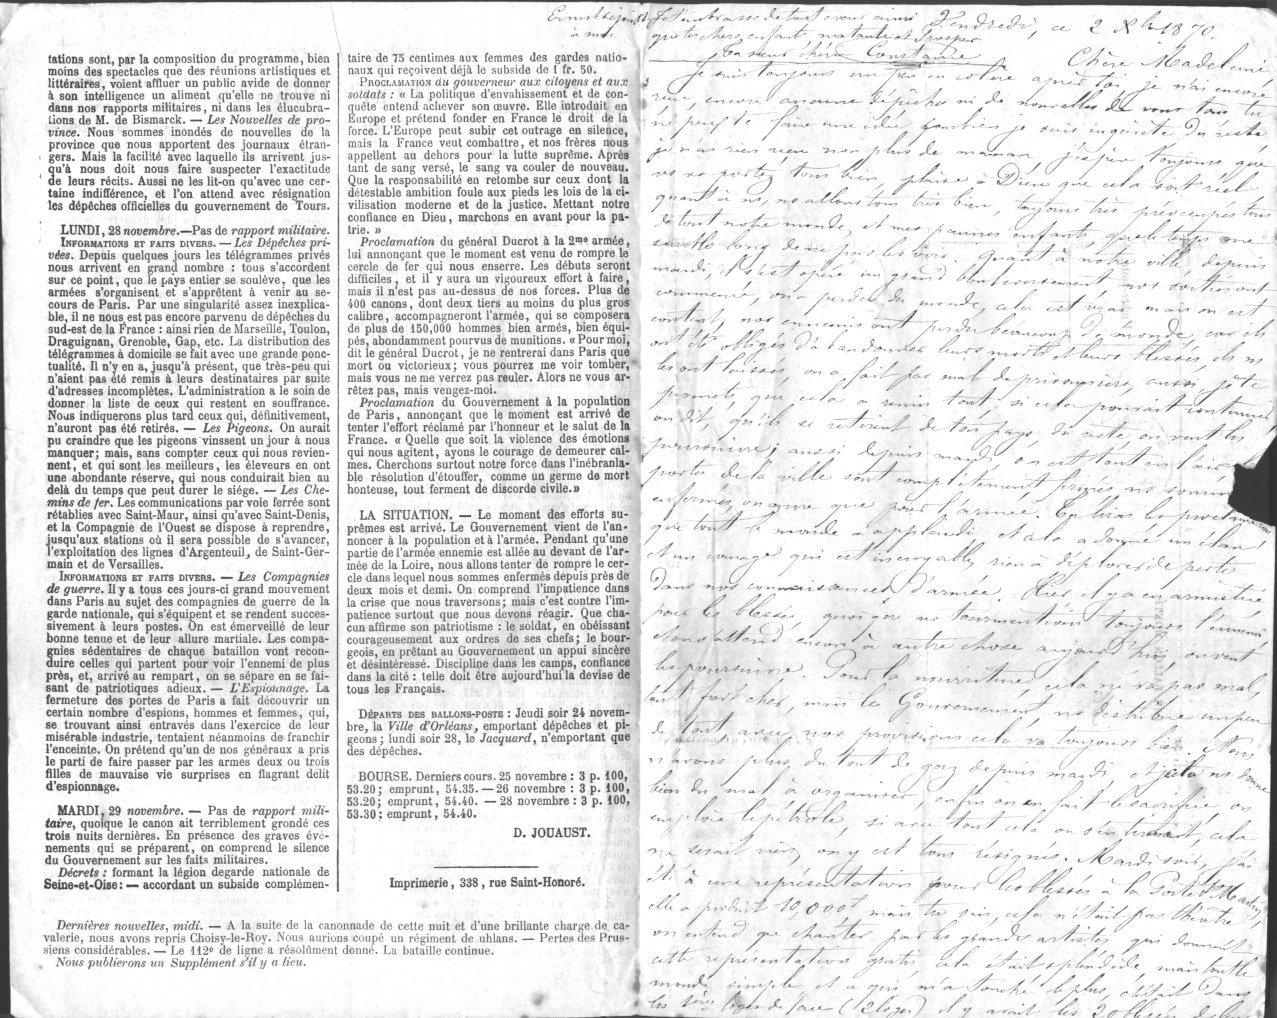 tations sont, par la composition du programme, bien
moins des spectacles que des réunions artistiques et
littéraires, voient affluer un public avide de donner
à son intelligence un aliment qu'elle ne trouve ni
dans nos rapports militaires, ni dans les élucubra-
tions de M. de Bismarck. — Les Nouvelles de pro-
vince. Nous sommes inondés de nouvelles de la
province que nous apportent des journaux étran-
gers. Mais la facilité avec laquelle ils arrivent jus-
qu'à nous doit nous faire suspecter l'exactitude
de leurs récits. Aussi ne les lit-on qu'avec une cer-
taine indifférence, et l'on attend avec résignation
les dépêches officielles du gouvernement de Tours.
LUNDI, 28 novembre.—Pas de rapport militaire.
INFORMATIONS ET FAITS DIVERS. — Les Dépêches pri-
vées. Depuis quelques jours les télégrammes privés
nous arrivent en grand nombre : tous s'accordent
sur ce point, que le pays entier se soulève, que les
armées s'organisent et s'apprêtent à venir au se-
cours de Paris. Par une singularité assez inexplica-
ble, il ne nous est pas encore parvenu de dépêches du
sud-est de la France : ainsi rien de Marseille, Toulon,
Draguignan, Grenoble, Gap, etc. La distribution des
télégrammes à domicile se fait avec une grande ponc-
tualité. Il n'y en a, jusqu'à présent, que très-peu qui
n'aient pas été remis à leurs destinataires par suite
d'adresses incomplètes. L'administration a le soin de
donner la liste de ceux qui restent en souffrance.
Nous indiquerons plus tard ceux qui, définitivement,
n'auront pas été retirés. — Les Pigeons. On aurait
pu craindre que les pigeons vinssent un jour à nous
manquer; mais, sans compter ceux qui nous revien-
nent, et qui sont les meilleurs, les éleveurs en ont
une abondante réserve, qui nous conduirait bien au
delà du temps que peut durer le siége. — Les Che-
mins de fer. Les communications par voie ferrée sont
rétablies avec Saint-Maur, ainsi qu'avec Saint-Denis,
et la Compagnie de l'Ouest se dispose à reprendre,
jusqu'aux stations où il sera possible de s'avancer,
l'exploitation des lignes d'Argenteuil, de Saint-Ger-
main et de Versailles.
INFORMATIONS ET FAITS DIVERS. — Les Compagnies
de guerre. Il y a tous ces jours-ci grand mouvement
dans Paris au sujet des compagnies de guerre de la
garde nationale, qui s'équipent et se rendent succes-
sivement à leurs postes. On est émerveillé de leur
bonne tenue et de leur allure martiale. Les compa-
gnies sédentaires de chaque bataillon vont recon-
duire celles qui partent pour voir l'ennemi de plus
près, et, arrivé au rempart, on se sépare en se fai-
sant de patriotiques adieux. — L'Espionnage. La
fermeture des portes de Paris a fait découvrir un
certain nombre d'espions, hommes et femmes, qui,
se trouvant ainsi entravés dans l'exercice de leur
misérable industrie, tentaient néanmoins de franchir
l'enceinte. On prétend qu'un de nos généraux a pris
le parti de faire passer par les armes deux ou trois
filles de mauvaise vie surprises en flagrant délit
d'espionnage.
MARDI, 29 novembre. — Pas de rapport mili-
taire, quoique le canon ait terriblement grondé ces
trois nuits dernières. En présence des graves évé-
nements qui se préparent, on comprend le silence
du Gouvernement sur les faits militaires.
Décrets : formant la légion degarde nationale de
Seine-et-Oise : — accordant un subside complémen-
taire de 75 centimes aux femmes des gardes natio-
naux qui reçoivent déjà le subside de 1 fr. 50.
PROCLAMATION du gouverneur aux citoyens et aux
soldats : « La politique d'envahissement et de con-
quête entend achever son œuvre. Elle introduit en
Europe et prétend fonder en France le droit de la
force. L'Europe peut subir cet outrage en silence,
mais la France veut combattre, et nos frères nous
appellent au dehors pour la lutte suprême. Après
tant de sang versé, le sang va couler de nouveau.
Que la responsabilité en retombe sur ceux dont la
détestable ambition foule aux pieds les lois de la ci-
vilisation moderne et de la justice. Mettant notre
confiance en Dieu, marchons en avant pour la pa-
trie. »
Proclamation du général Ducrot à la 2me armée,
lui annonçant que le moment est venu de rompre le
cercle de fer qui nous enserre. Les débuts seront
difficiles, et il y aura un vigoureux effort à faire,
mais il n'est pas au-dessus de nos forces. Plus de
400 canons, dont deux tiers au moins du plus gros
calibre, accompagneront l'armée, qui se composera
de plus de 150,000 hommes bien armés, bien équi-
pés, abondamment pourvus de munitions. « Pour moi,
dit le général Ducrot, je ne rentrerai dans Paris que
mort ou victorieux; vous pourrez me voir tomber,
mais vous ne me verrez pas reculer. Alors ne vous ar-
rêtez pas, mais vengez-moi.
Proclamation du Gouvernement à la population
de Paris, annonçant que le moment est arrivé de
tenter l'effort réclamé par l'honneur et le salut de la
France. « Quelle que soit la violence des émotions
qui nous agitent, ayons le courage de demeurer cal-
mes. Cherchons surtout notre force dans l'inébranla-
ble résolution d'étouffer, comme un germe de mort
honteuse, tout ferment de discorde civile.»
LA SITUATION. — Le moment des efforts su-
prêmes est arrivé. Le Gouvernement vient de l'an-
noncer à la population et à l'armée. Pendant qu'une
partie de l'armée ennemie est allée au devant de l'ar-
mée de la Loire, nous allons tenter de rompre le cer-
cle dans lequel nous sommes enfermés depuis près de
deux mois et demi. On comprend l'impatience dans
la crise que nous traversons; mais c'est contre l'im-
patience surtout que nous devons réagir. Que cha-
cun affirme son patriotisme : le soldat, en obéissant
courageusement aux ordres de ses chefs; le bour-
geois, en prêtant au Gouvernement un appui sincère
et désintéressé. Discipline dans les camps, confiance
dans la cité : telle doit être aujourd'hui la devise de
tous les Français.
DÉPARTS DES BALLONS-POSTE : Jeudi soir 24 novem-
bre, la Ville d'Orléans, emportant dépêches et pi-
geons; lundi soir 28, le Jacquard, n'emportant que
des dépêches.
BOURSE. Derniers cours. 25 novembre : 3 p. 100,
53.20; emprunt, 54.35. — 26 novembre : 3 p. 100,
53.20; emprunt, 54.40. — 28 novembre : 3 p. 100,
53.30; emprunt, 54.40.
D. JOUAUST.
Imprimerie, 338, rue Saint-Honoré.
Dernières nouvelles, midi. — A la suite de la canonnade de cette nuit et d'une brillante charge de ca-
valerie, nous avons repris Choisy-le-Roy. Nous aurions coupé un régiment de uhlans. — Pertes des Prus-
siens considérables. — Le 112e de ligne a résolûment donné. La bataille continue.
Nous publierons un Supplément s'il y a lieu.
Je t'embrasse de tout cœur ainsi
que tes chers enfants ma tante et Prosper
Ta sœur chérie Constance
Vendredi, ce 2 Xbre 1870.
Chère Madeleine
Je suis toujours un peu en colère après toi je n'ai encore
rien, encore aucune dépêche ni de nouvelles de vous tous tu
ne peux te faire une idée combien je suis inquiète du reste
je n'ai rien reçu non plus de maman j'espère toujours que
vs vs portez tous bien plaise à Dieu que cela soit réel
quant à ns, ns allons tous très bien, toujours très préoccupés tous
de tout notre monde, et mes pauvres enfants que le temps me
semble long de ne pas les voir, quant à notre ville depuis
mardi, il s'est opéré un grand bouleversement nos sorties ont
commencé, on a perdu du monde, cela est vrai mais on est
content, nos ennemis ont perdu beaucoup de monde, car ils
ont été obligés d'abandonner leurs morts et leurs blessés ils ns
les ont laissés on a fait pas mal de prisonniers, aussi je te
promets que cela a remis tout, si cela pouvait continuer
on dit, qu'ils se retirent de tous pays, du reste, on veut les
poursuivre; aussi depuis mardi on est tout en l'air
portes de la ville sont complètement fermées ns sommes
enfermés on ouvre que pour l'armée. Tu liras les proclamations
que tout le monde a applaudi et cela a donné un élan
et un courage qui est incroyable, rien à déplorer de perte
dans nos connaissances d'armée. Hier il y a eu armistice
pour les blessés quoique ns tourmentions toujours l'ennemi
Nous attend encore à autre chose aujourd'hui, on veut
les poursuivre. Pour la nourriture, cela ne va pas mal,
est fort cher, mais le Gouvernement ns distribue un peu
de tout avec nos provisions cela va toujours bien. Nous
n'avons plus du tout de gaz depuis mardi, et cela ns donne
bien du mal à organiser, enfin on en fait le sacrifice, on
emploie le pétrole, si avec tout cela on s'en tirait, cela
ne serait rien, on y est tous résignés. Mardi soir, j'ai
été à une représentation pour les blessés à la Porte St Martin,
elle a produit 10,000f mais tu sais, cela n'était pas théâtre
on entend que chanter par les grandes artistes, qui donnent
cette représentation gratis, cela était splendide mais toute
monde simple et ce qui m'a touché le plus, c'était dans
les 1ères loges de face (12 loges) il y avait les